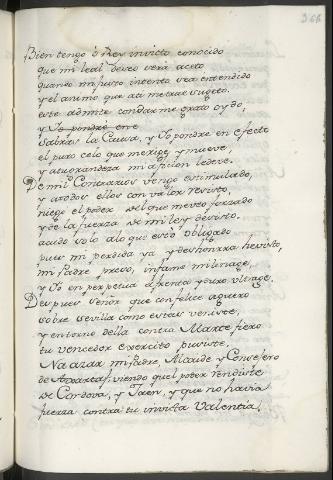 366
Bien tengo ô Rey invicto conocido
que mi leal deseo será aceto
quando mi justo intento sea entendido
y el animo que atí metrae sugeto.
este admite con darme grato oydo,
y Yo pondré en e
sabras la Causa, y Yo pondre en efecto
el puro celo que me rige, y mueve,
y atugrandeza mi aficion se deve.
De mil Contrarios vengo estimulado,
y atodos ellos con valor resisto,
niego el poder del que me veo forzado
y de la fuerza de mi ley desisto.
acudo solo alo que estó obligado
pues mi perdida ya y deshonrra hevisto,
mi Padre preso, infame mi linage,
y Yo en perpetua afrenta y duro ultrage.
Despues señor que con felice aguero
sobre Sevilla como estas veniste,
y en torno della contra Marte fiero
tu vencedor exercito pusiste.
Na azar mi Padre Alcaide y Consejero
de Axarta, viendo quel poder rendiste
de Cordova, y Jaen, y que no havia
fuerza contra tu invicta Valentia,